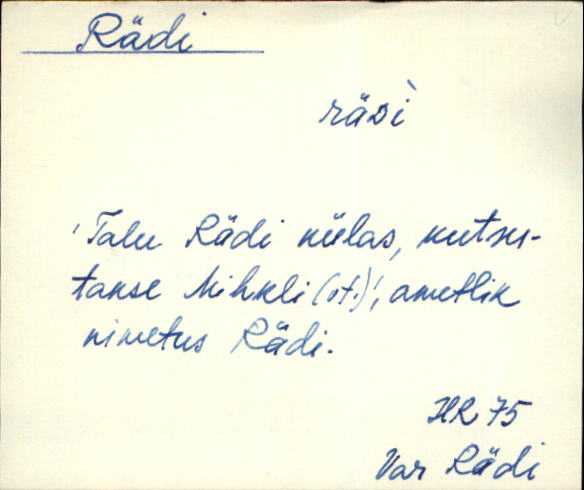 Rädi
räDì
'Talu Rädi külas, kutsu-
takse Mihkli (ot.)', ametlik
nimetus Rädi.
HR 75
Var Rädi